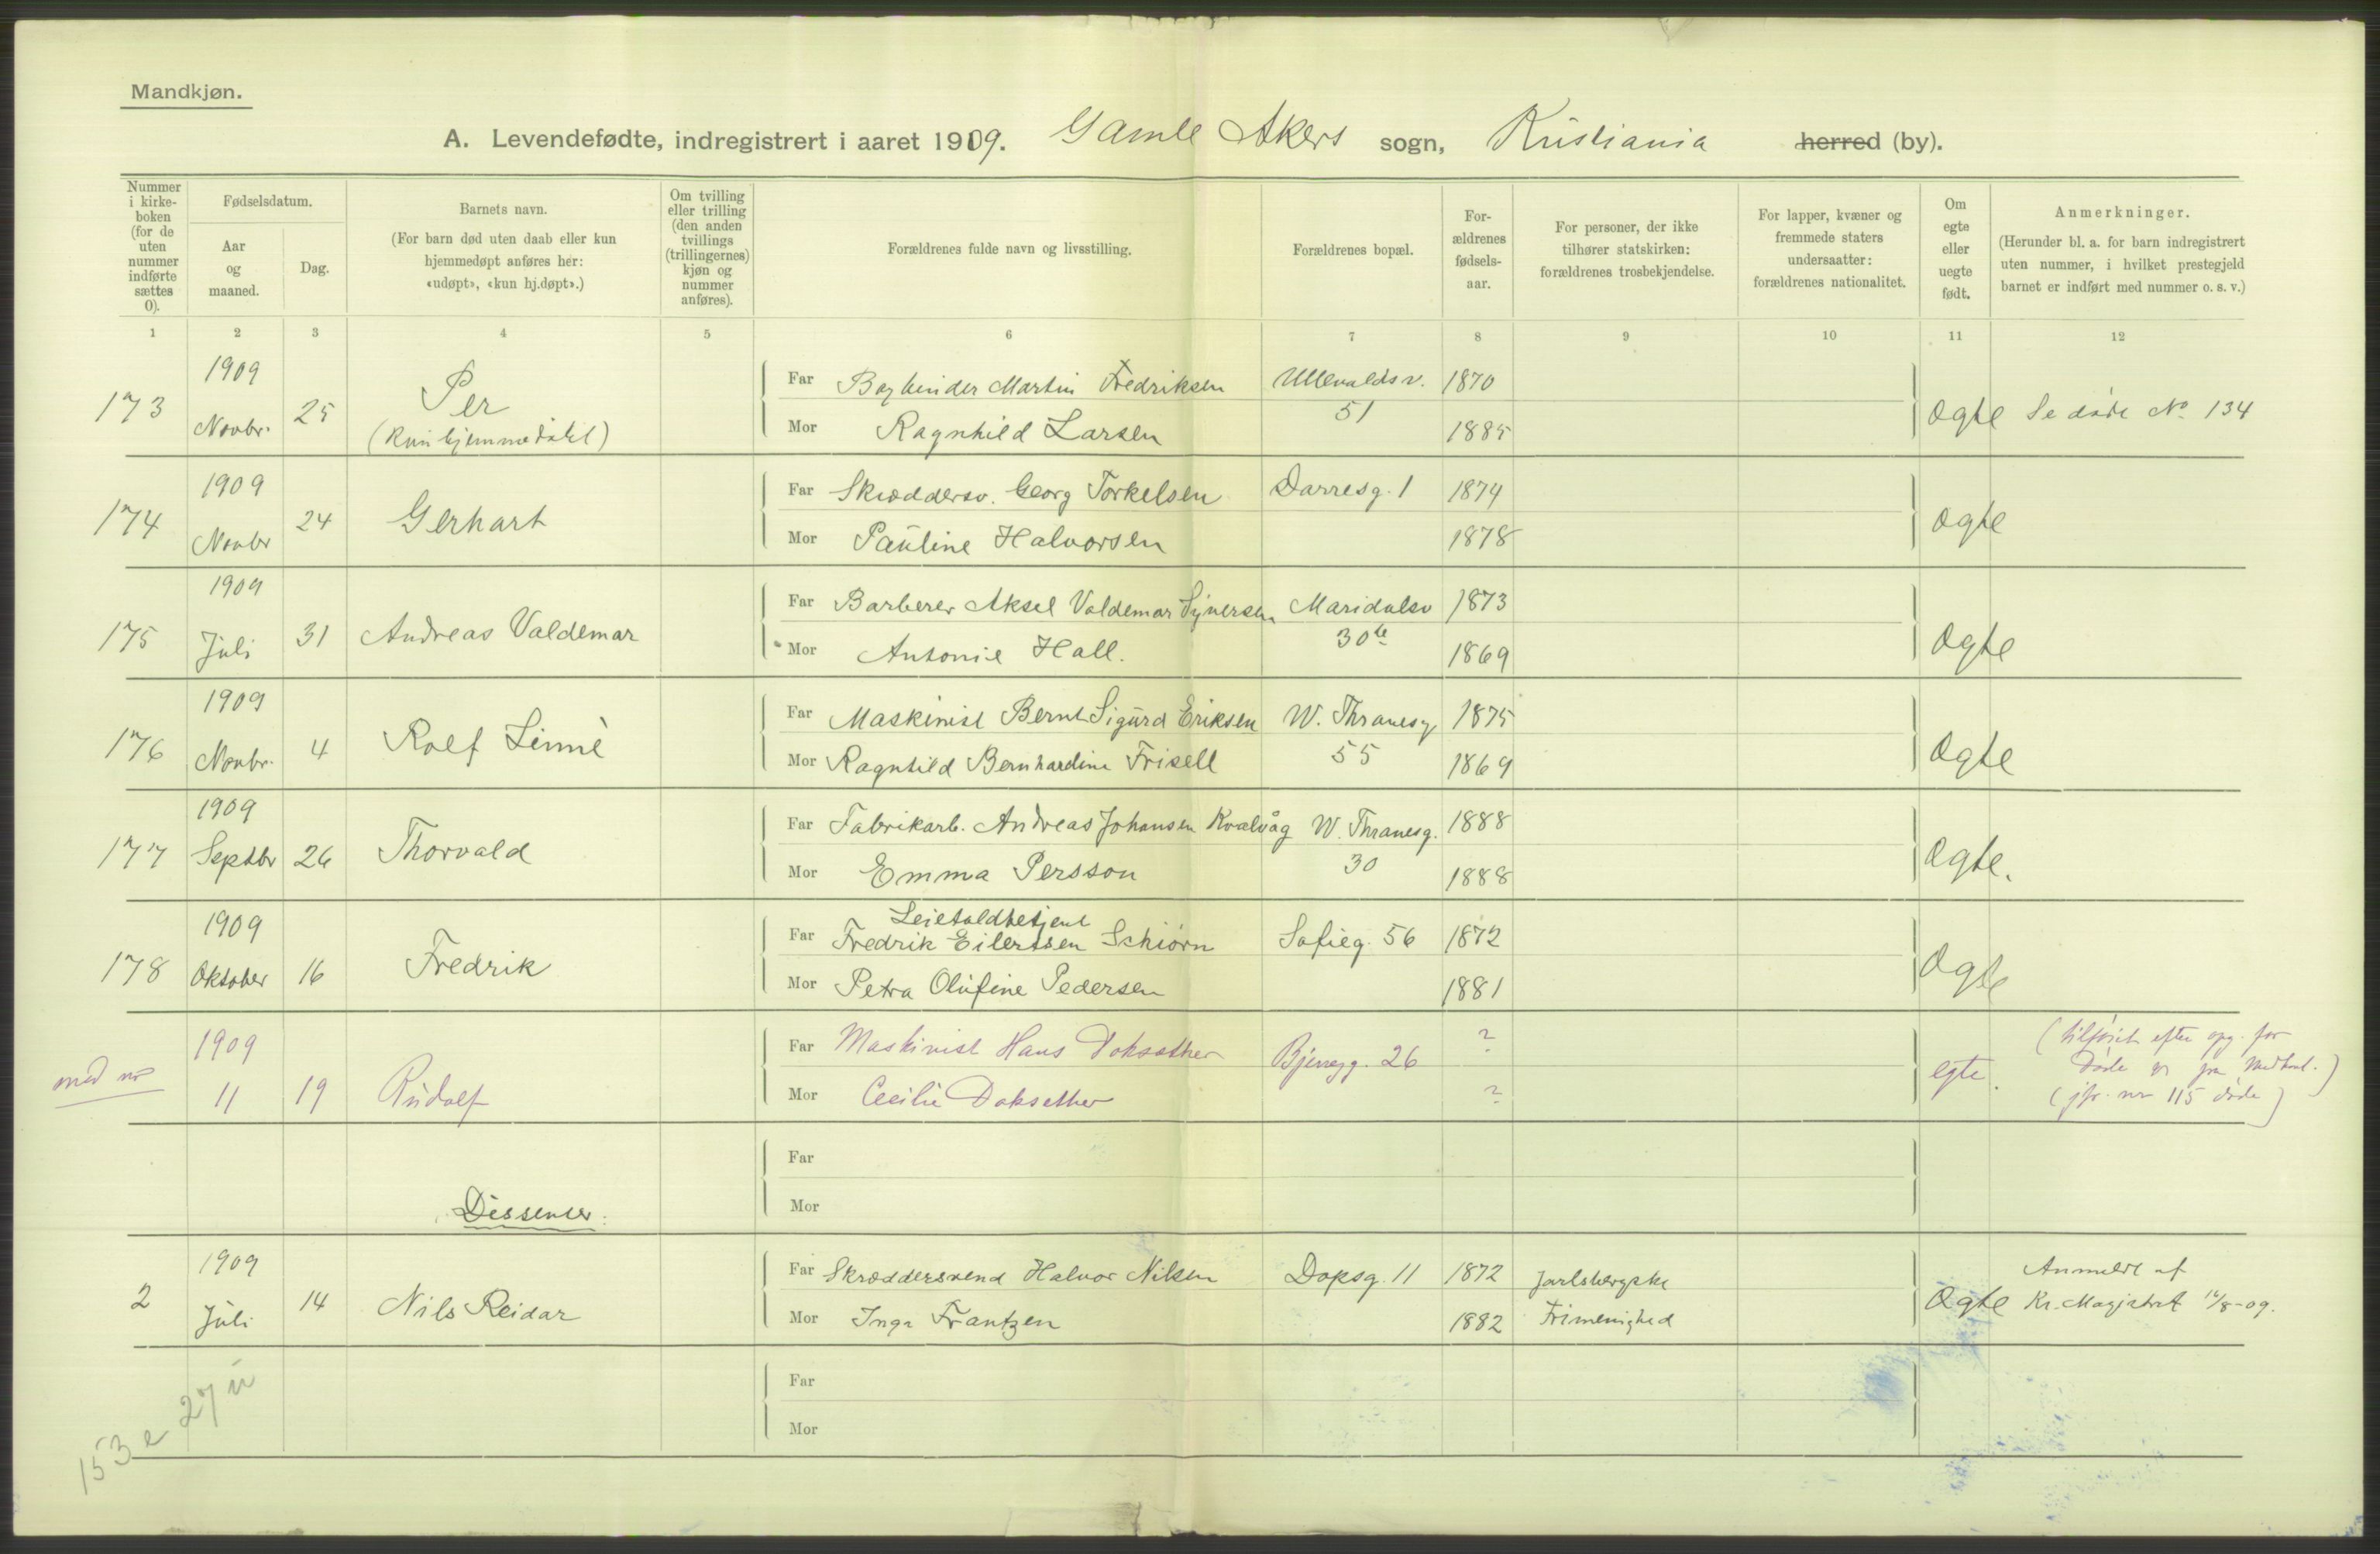 Mandkjøn.
A. Levendefødte, indregistrert i aaret 1909. Gamle Akers sogn, Kristiania herred (by).
Nummer i kirke-boken (for de uten nummer indførte sættes 0).
Fødselsdatum.
Aar og maaned.
Dag.
Barnets navn.
(For barn død uten daab eller kun hjemmedøpt anføres her: «udøpt», «kun hj.døpt».)
Om tvilling eller trilling (den anden tvillings (trillingernes) kjøn og nummer anføres).
Forældrenes fulde navn og livsstilling.
Forældrenes bopæl.
For-ældrenes fødsels-aar.
For personer, der ikke tilhører statskirken: forældrenes trosbekjendelse.
For lapper, kvæner og fremmede staters undersaatter: forældrenes nationalitet.
Om egte eller uegte født.
Anmerkninger.
(Herunder bl. a. for barn indregistrert uten nummer, i hvilket prestegjeld barnet er indført med nummer o. s. v.)
1 2 3 4 5 6 7 8 9 10 11 12
1909 Far Bogbinder Martin Fredriksen Ullevaldsv. 1870
173 Novbr. 25 Per 51 Ægte Se døde No 134
(Kun hjemmedøbt) Mor Ragnhild Larsen 1885
1909 Far Skræddersv. Georg Torkelsen Darresg. 1 1874
174 Novbr 24 Gerhart Ægte
Mor Pauline Halvorsen 1878
1909 Far Barberer Aksel Valdemar Syversen Maridalsv 1873
175 Juli 31 Andreas Valdemar 30 Ægte
Mor Antonie Hall. 1869
1909 Far Maskinist Bernt Sigurd Eriksen W. Thranesg 1875
176 Novbr. 4 Rolf Linné 55 Ægte
Mor Ragnhild Bernhardine Frisell 1869
1909 Far Fabrikarb. Andreas Johansen Kvalvåg W. Thranesg. 1888
177 Septbr 26 Thorvald 30 Ægte.
Mor Emma Persson 1888
1909 Leietoldbetjent
Far Fredrik Eilertsen Schiørn Sofieg. 56 1872
178 Oktober 16 Fredrik Ægte
Mor Petra Olufine Pedersen 1881
1909 Far Maskinist Hans Doksæther Bjeregg. 26 ? (tilføiet efter opg. for
11 19 Rudolf egte. døde fra
Mor Cecilie Doksether ? (jfr. nr 115 døde)
Far
Mor
Dissenter.
1909 Far Skræddersvend Halvor Nilsen Dopsg. 11 1872 Jarlsbergske Anmeldt af
2 Juli 14 Nils Reidar Ægte Kr. Magistrat 16/8-09.
Mor Inga Frantzen 1882 Frimenighed
Far
Mor
153 e 27 u